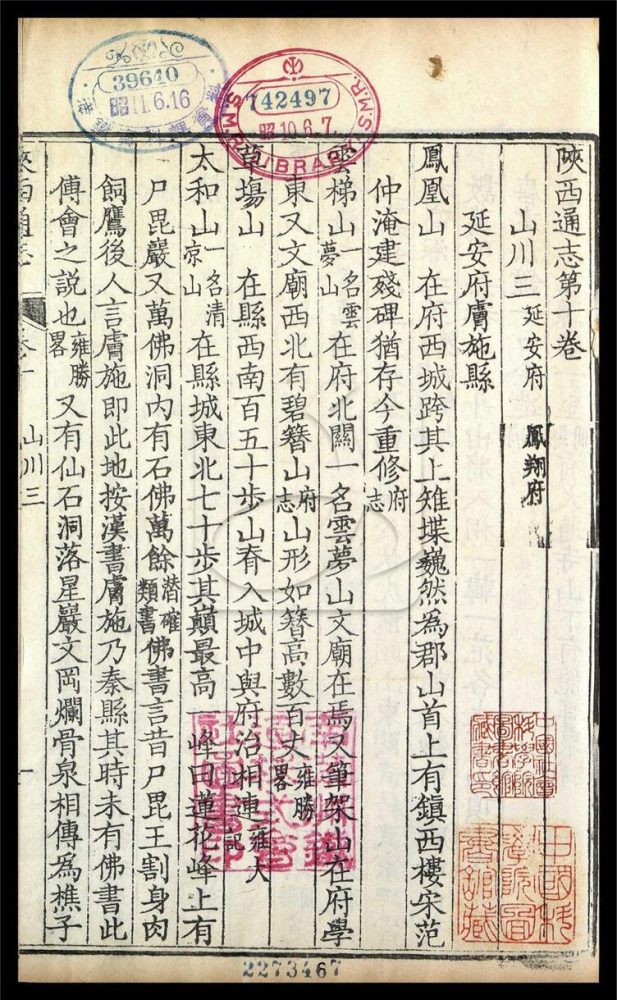 陝西通志第十卷
山川三 延安府 鳳翔府
延安府膚施縣
鳳凰山 在府西城跨其上雉堞巍然爲郡山首上有鎮西樓宋范
仲淹建殘碑猶存今重修府志
雲梯山一名雲夢山在府北關一名雲夢山文廟在焉又筆架山在府學
東又文廟西北有碧簪山府志山形如簪高數百丈雍勝畧
草場山 在縣西南百五十步山脊入城中與府治相連雍大記
太和山一名清凉山在縣城東北七十步其巔最高一峰曰蓮花峰上有
尸毘巖又萬佛洞内有石佛萬餘潜確類書佛書言昔尸毘王割身肉
飼鷹後人言膚施即此地按漢書膚施乃秦縣其時未有佛書此
傅會之説也雍勝畧又有仙石洞落星巖文岡爛骨泉相傳爲樵子
陝西通志 卷十 山川三 一
39640
昭11.6.16
742497
昭10.6.7
S.M.R. LIBRARY S.M.R.
中國科
學院圖
書館藏
2273467